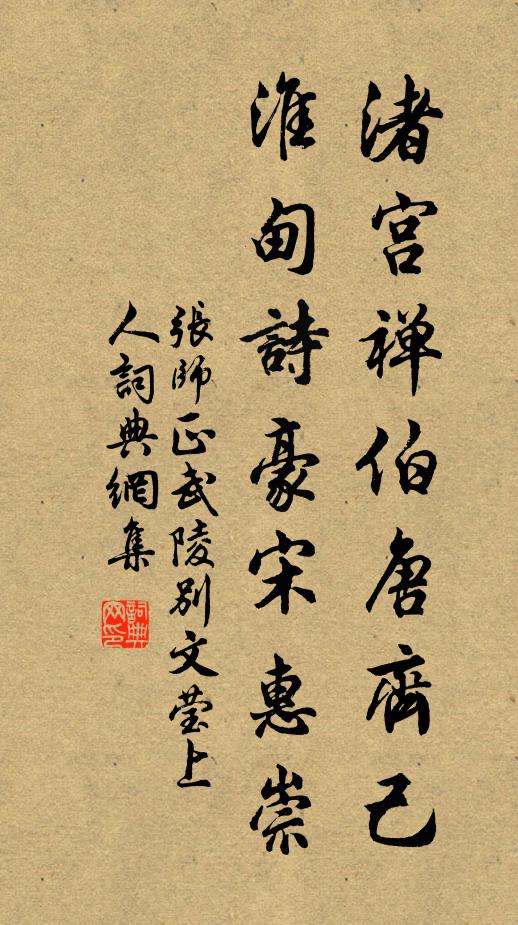 渚宮禅伯唐齊己
淮甸詩豪宋惠崇
張師正武陵別文瑩上
人詞典網集
詞典網印